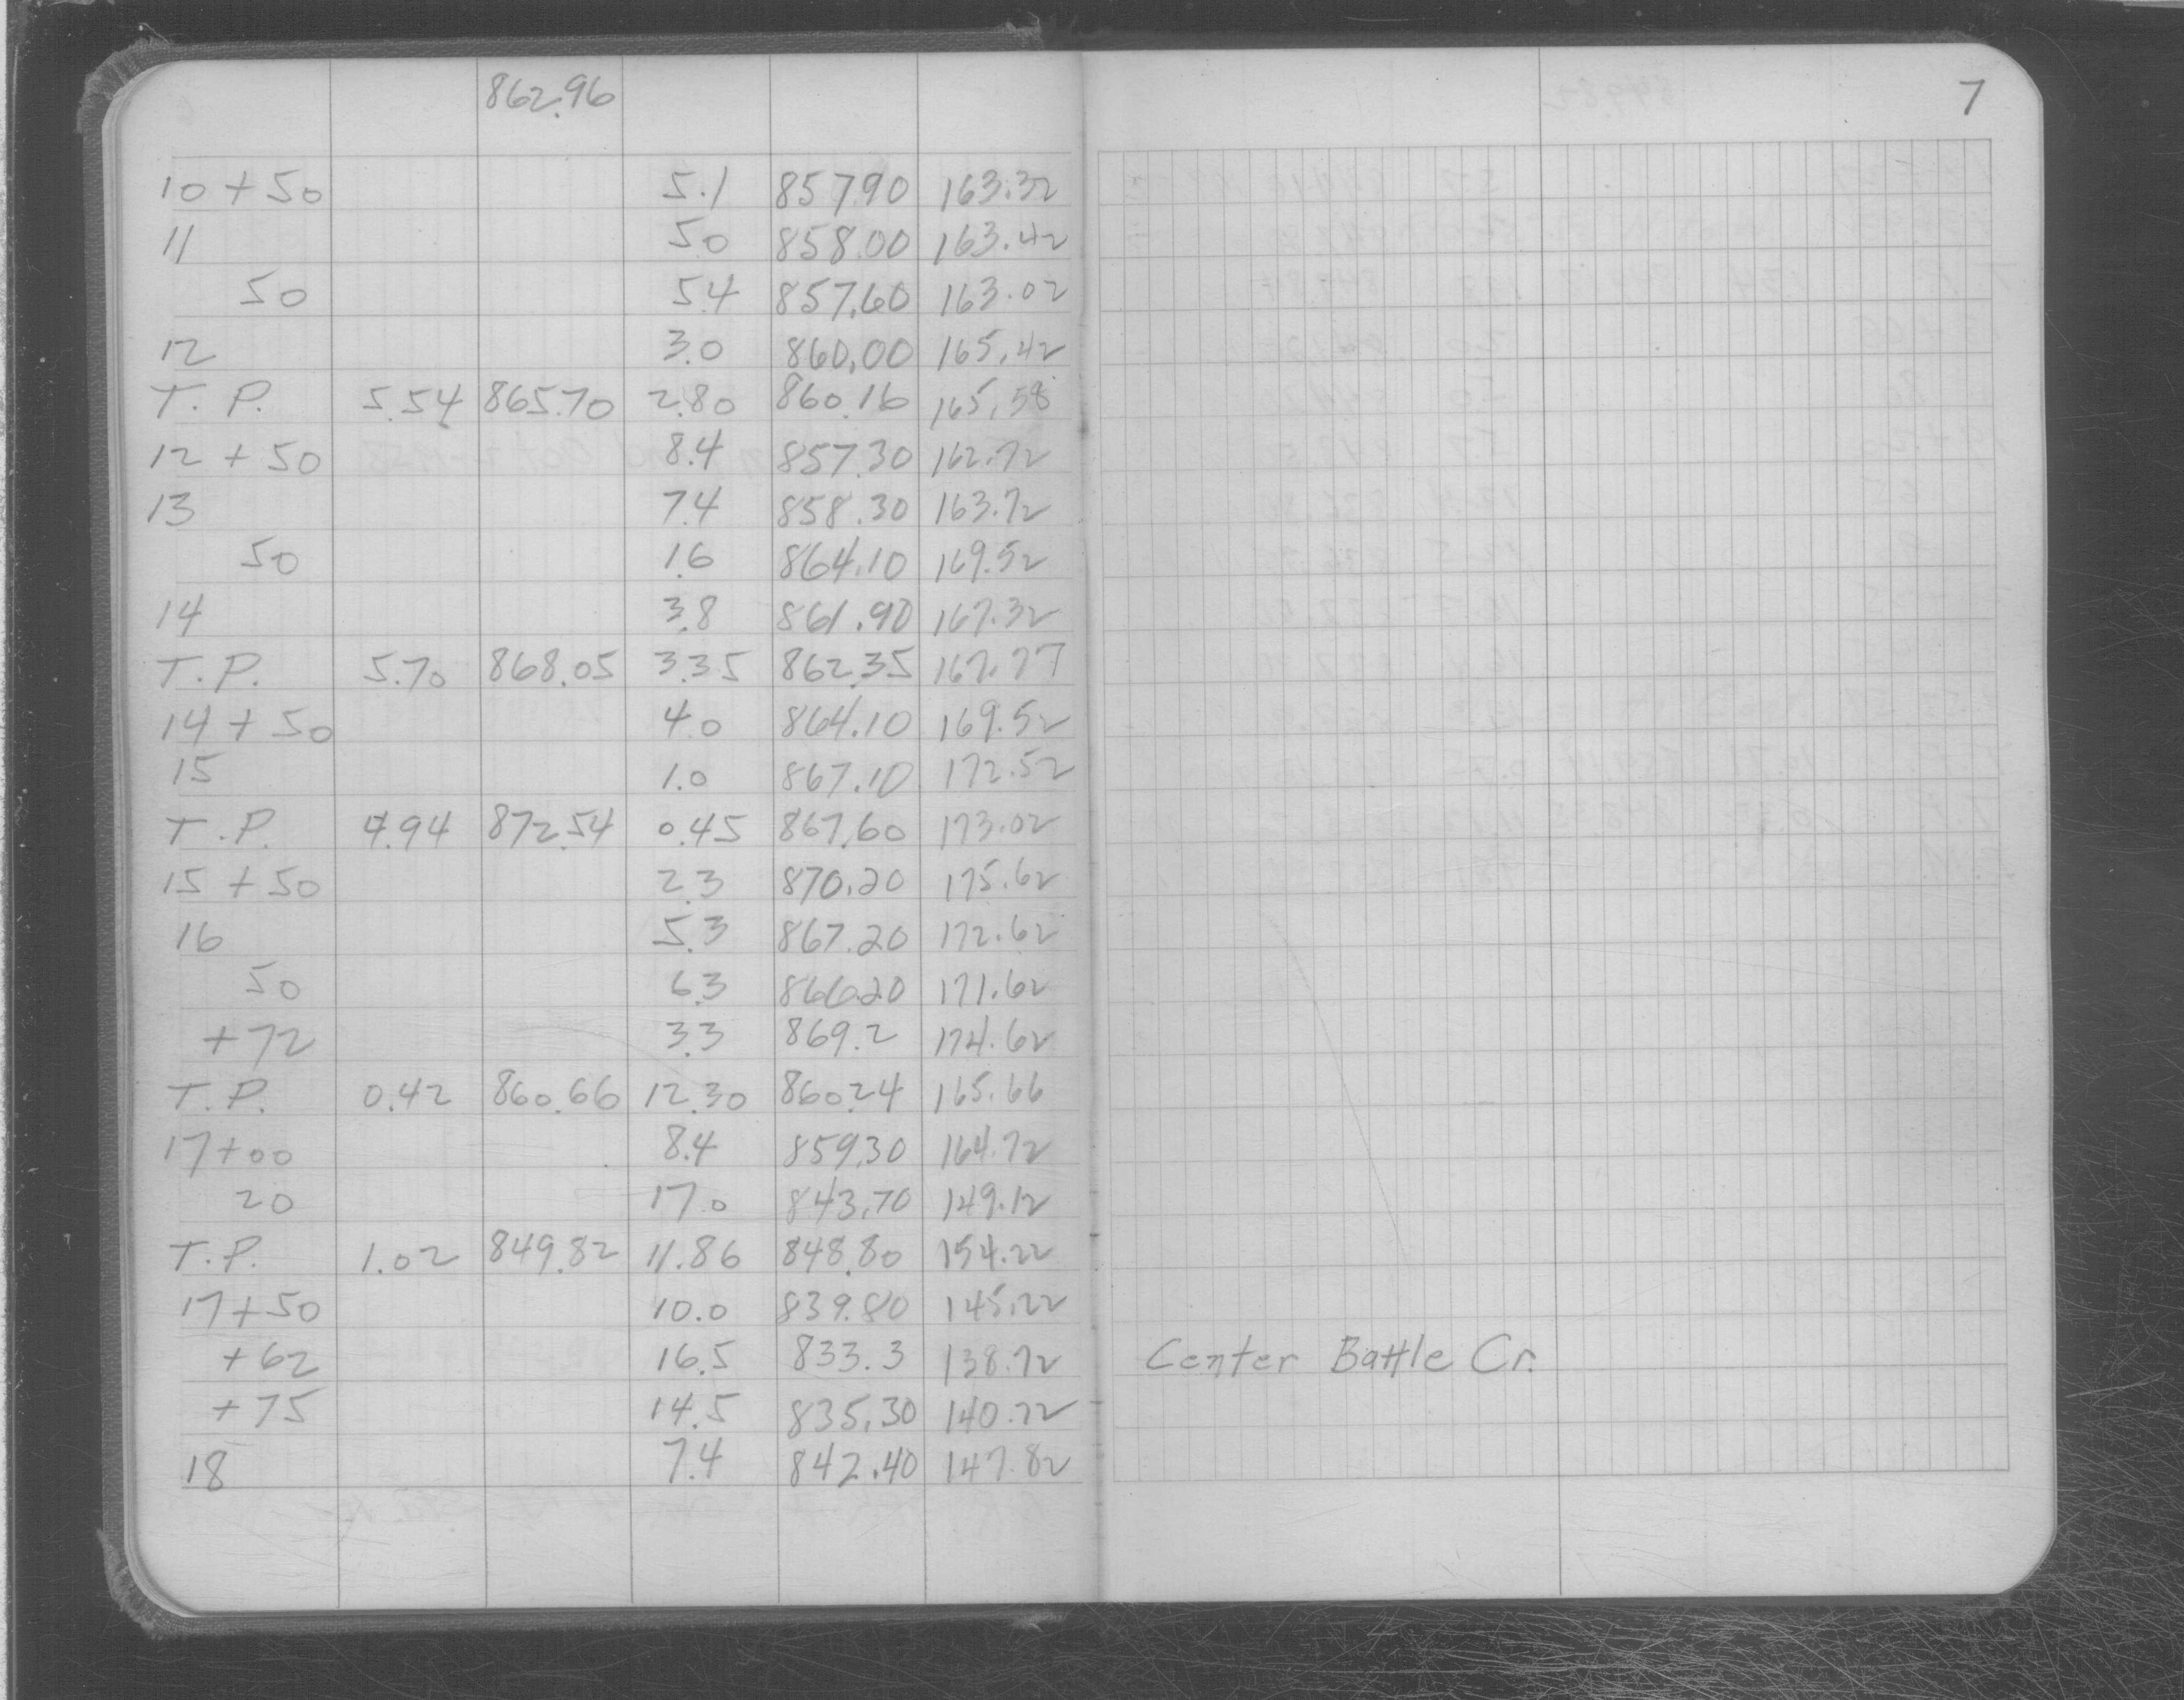 862.96
7
10 + 50 5.1 857.90 163.32
11 5.0 858.00 163.42
50 5.4 857.60 163.02
12 3.0 860.00 165.42
T. P. 5.54 865.70 2.80 860.16 165.58
12 + 50 8.4 857.30 162.72
13 7.4 858.30 163.72
50 1.6 864.10 169.52
14 3.8 861.90 167.32
T. P. 5.70 868.05 3.35 862.35 167.77
14 + 50 4.0 864.10 169.52
15 1.0 867.10 172.52
T. P. 4.94 872.54 0.45 867.60 173.02
15 + 50 2.3 870.20 175.62
16 5.3 867.20 172.62
50 6.3 866.20 171.62
+ 72 3.3 869.2 174.62
T. P. 0.42 860.66 12.30 860.24 165.66
17+00 8.4 859.30 164.72
20 17.0 843.70 149.12
T. P. 1.02 849.82 11.86 848.80 154.22
17+50 10.0 839.80 145.22
+62 16.5 833.3 138.72 Center Battle Cr.
+75 14.5 835.30 140.72
18 7.4 842.40 147.82